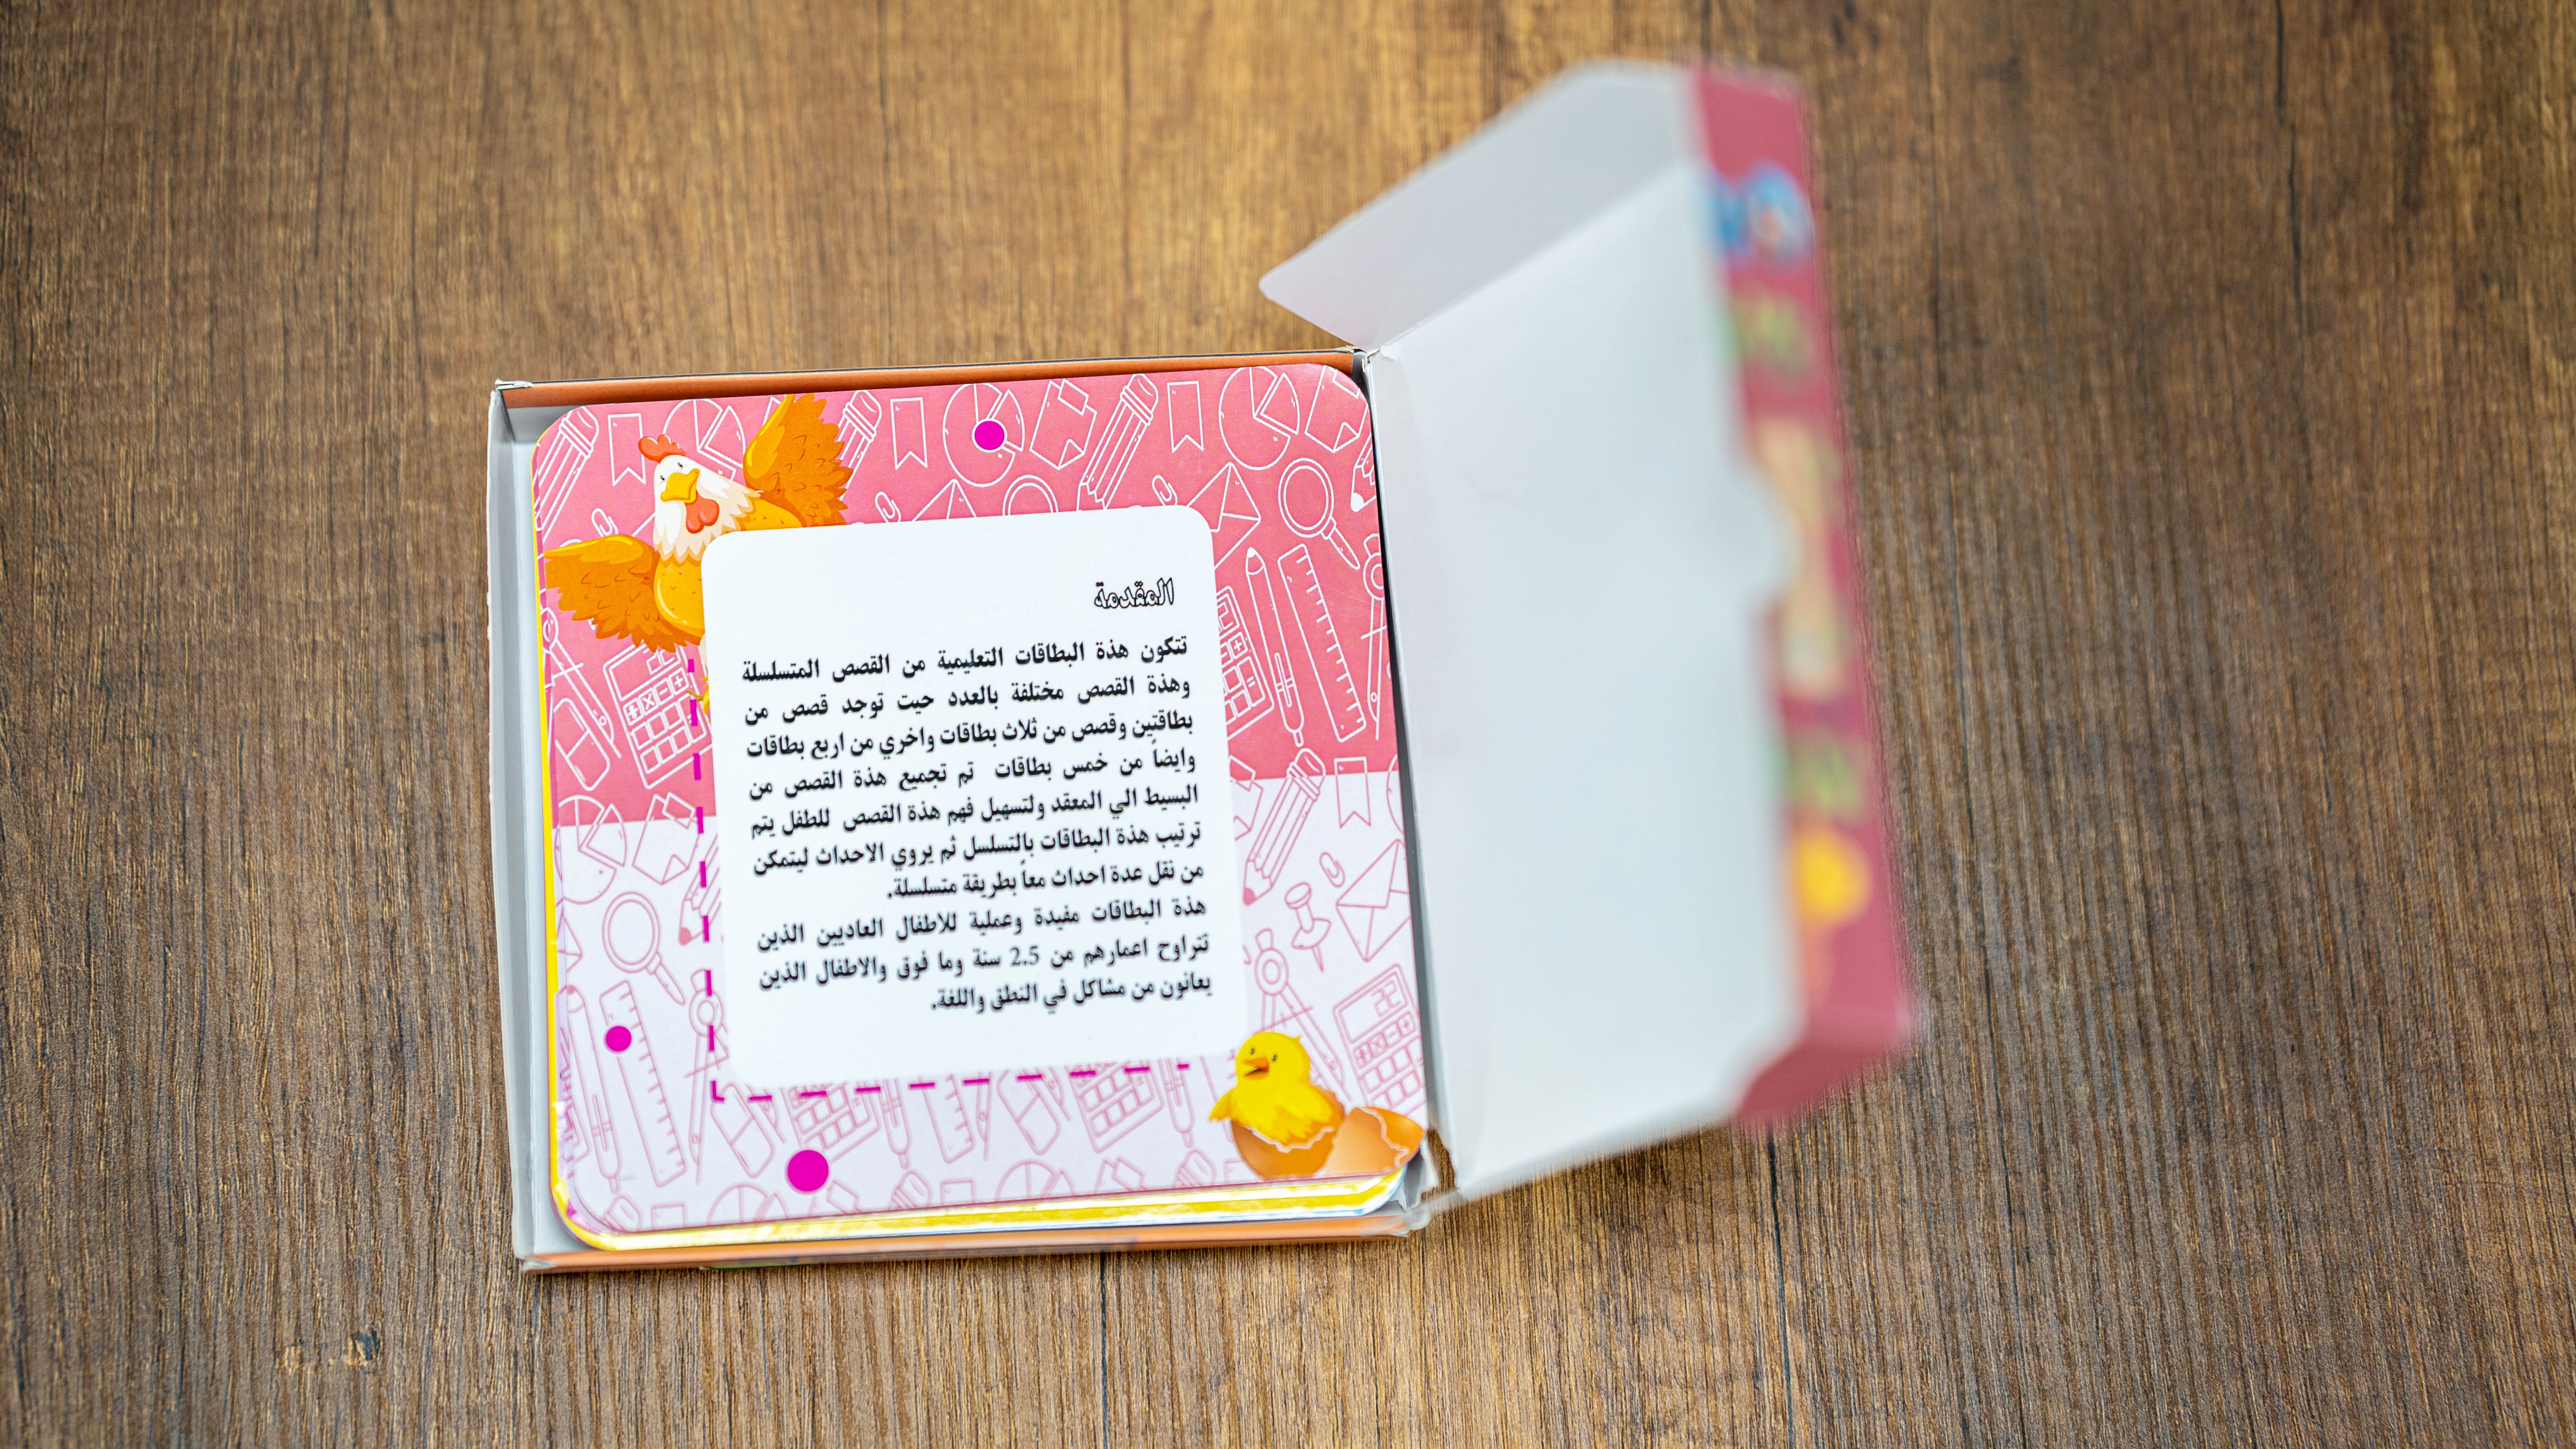 المقدمة
تتكون هذة البطاقات التعليمية من القصص المتسلسلة
وهذة القصص مختلفة بالعدد حيت توجد قصص من
بطاقتين وقصص من ثلاث بطاقات واخري من اربع بطاقات
وايضاً من خمس بطاقات تم تجميع هذة القصص من
البسيط الي المعقد ولتسهيل فهم هذة القصص للطفل يتم
ترتيب هذة البطاقات بالتسلسل ثم يروي الاحداث ليتمكن
من نقل عدة احداث معاً بطريقة متسلسلة.
هذة البطاقات مفيدة وعملية للاطفال العاديين الذين
تتراوح اعمارهم من 2.5 سنة وما فوق والاطفال الذين
يعانون من مشاكل في النطق واللغة.